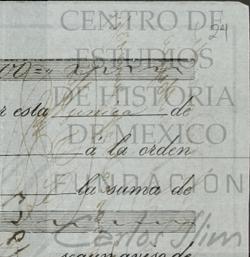 CENTRO DE
24
ESTUDIOS
DE HISTORIA
r esta única de
DE MEXICO
á la orden
FUNDACIÓN
la suma de
Carlos Slim
segun aviso de